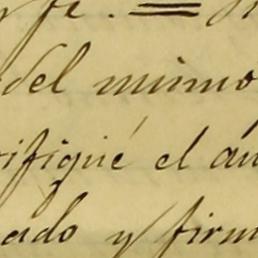 fe. =
del mismo
ifiqué el au
ado y firm